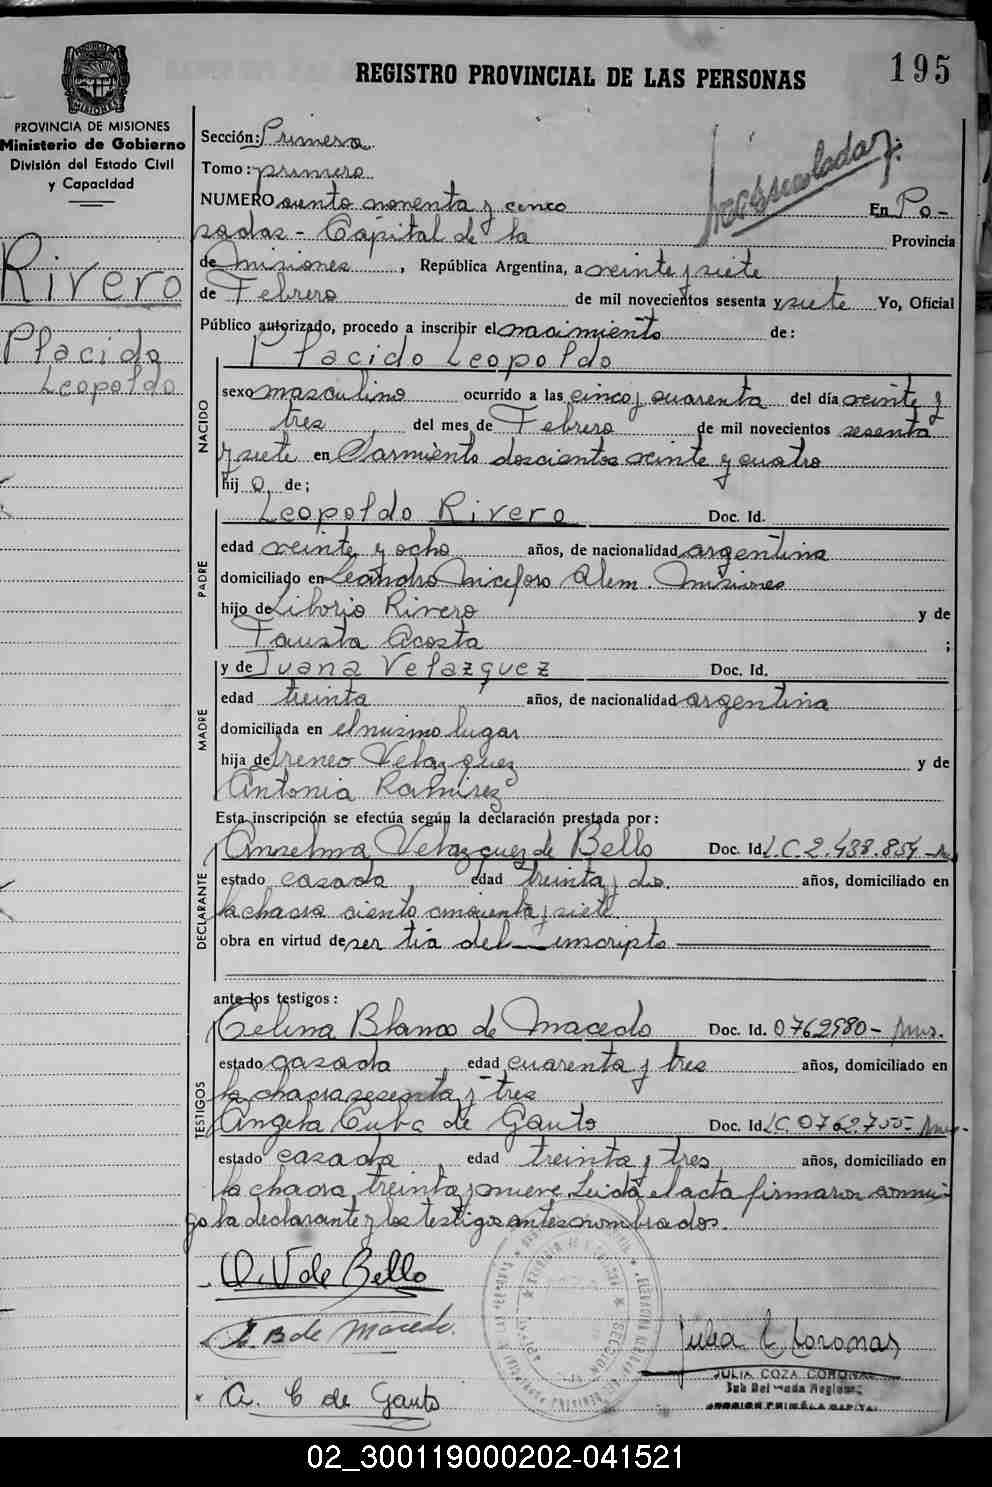 195
REGISTRO PROVINCIAL DE LAS PERSONAS
PROVINCIA DE MISIONES
Ministerio de Gobierno
División del Estado Civil
y Capacidad
Rivero
Placido
Leopoldo
Sección: Primera
Tomo: primero
NUMERO ciento noventa y cinco En Po-
sadas - Capital de la Provincia
de Misiones, República Argentina, a veinte y siete
de Febrero de mil novecientos sesenta y siete Yo, Oficial
Público autorizado, procedo a inscribir el nacimiento de:
Placido Leopoldo
NACIDO
sexo masculino ocurrido a las cinco y cuarenta del día veinte y
tres del mes de Febrero de mil novecientos sesenta
y siete en Sarmiento doscientos veinte y cuatro
hij o de;
PADRE
Leopoldo Rivero Doc. Id.
edad veinte y ocho años, de nacionalidad argentina
domiciliado en Leandro Niceforo Alem. Misiones
hijo de Liborio Rivero y de
Fausta Acosta ;
MADRE
y de Juana Velazquez Doc. Id.
edad treinta años, de nacionalidad argentina
domiciliada en el mismo lugar
hija de Ireneo Velazquez y de
Antonia Ramirez
Esta inscripción se efectúa según la declaración prestada por:
DECLARANTE
Anselma Velazquez de Bello Doc. Id. L.C. 2.488.854
estado casada, edad treinta y dos años, domiciliado en
la chacra ciento cincuenta y siete
obra en virtud de ser tía del inscripto
ante los testigos:
TESTIGOS
Celina Blanco de Macedo Doc. Id. 0762980- Mns.
estado casada, edad cuarenta y tres años, domiciliado en
la chacra sesenta y tres
Angela Cuba de Gauto Doc. Id. LC. 0762.755- Mns-
estado casada, edad treinta y tres años, domiciliado en
la chacra treinta y nueve. Leida el acta firmaron conmi-
go la declarante y los testigos antes nombrados.
A. V de Bello
C. B de Macedo.
A. C de Gauto
Julia C Coronas
JULIA COZA CORONAS
02_300119000202-041521